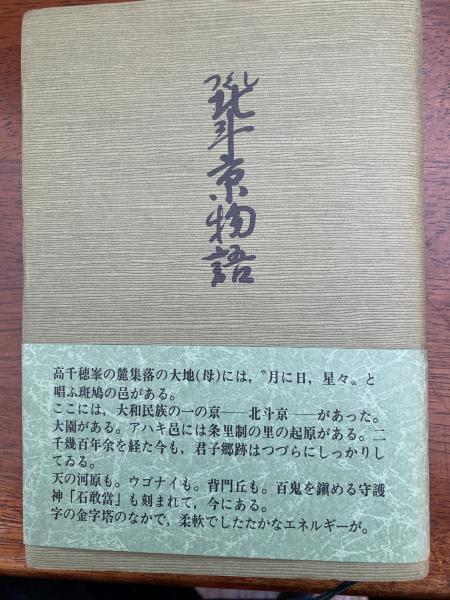 つくし
北斗京物語
高千穂峯の麓集落の大地(母)には,〝月に日,星々〟と
唱ふ斑鳩の邑がある。
ここには,大和民族の一の京——北斗京——があった。
大園がある。アハキ邑には条里制の里の起原がある。二
千幾百年余を経た今も,君子郷跡はつづらにしっかりし
てゐる。
天の河原も。ウゴナイも。背門丘も。百鬼を鎭める守護
神「石敢當」も刻まれて,今にある。
字の金字塔のなかで,柔軟でしたたかなエネルギーが。